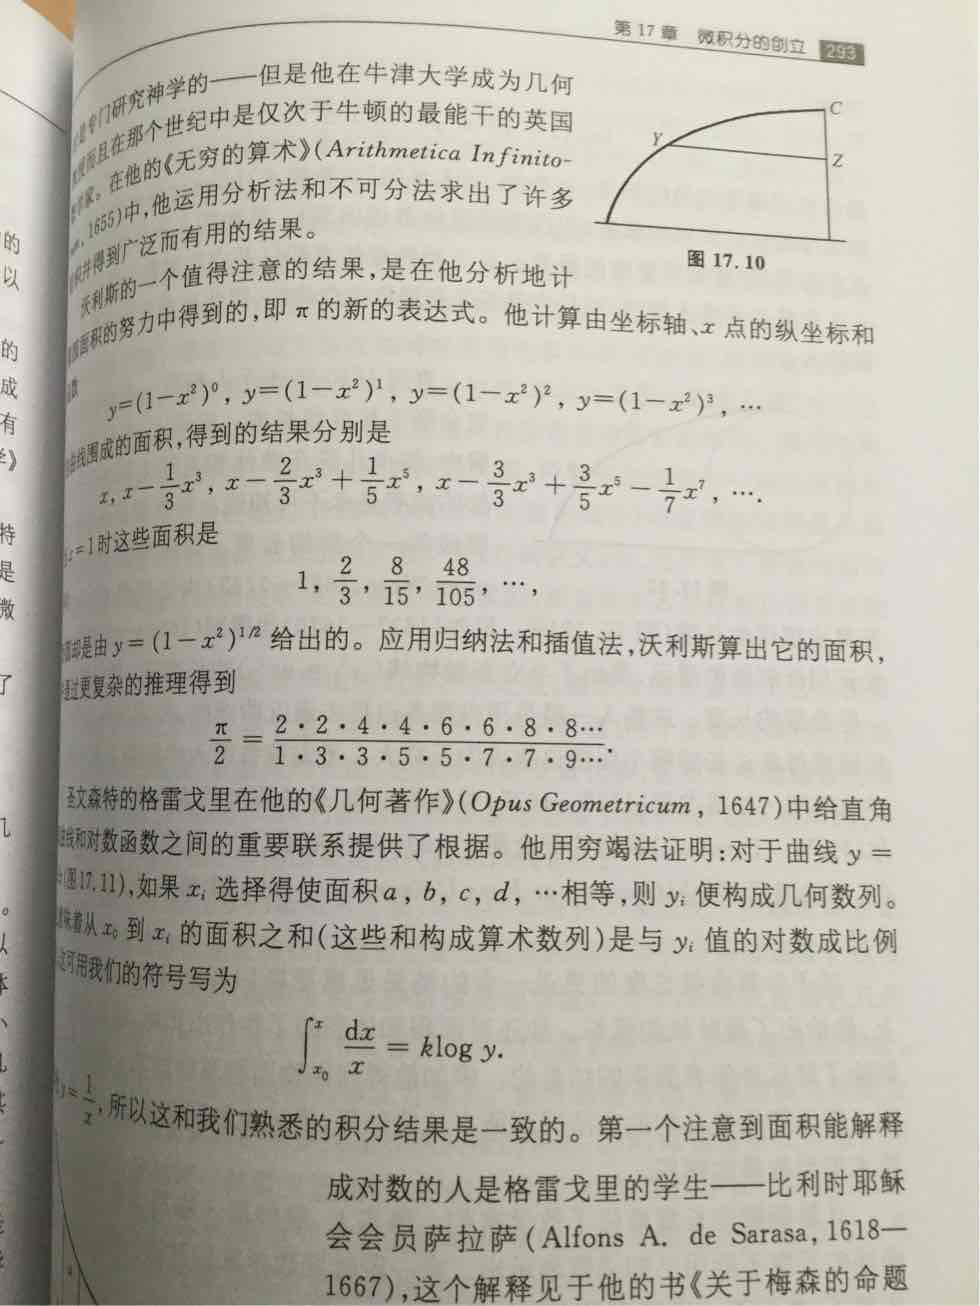 第 17 章 微积分的创立 293
专门研究神学的——但是他在牛津大学成为几何
而且在那个世纪中是仅次于牛顿的最能干的英国
家。在他的《无穷的算术》(Arithmetica Infinito-
1655)中,他运用分析法和不可分法求出了许多
并得到广泛而有用的结果。
C
Y
Z
图 17.10
沃利斯的一个值得注意的结果,是在他分析地计
面积的努力中得到的,即 π 的新的表达式。他计算由坐标轴、x 点的纵坐标和
数
y=(1−x²)⁰, y=(1−x²)¹, y=(1−x²)², y=(1−x²)³, …
曲线围成的面积,得到的结果分别是
x, x−1/3x³, x−2/3x³+1/5x⁵, x−3/3x³+3/5x⁵−1/7x⁷, ….
x=1时这些面积是
1, 2/3, 8/15, 48/105, …,
却是由 y=(1−x²)^1/2 给出的。应用归纳法和插值法,沃利斯算出它的面积,
通过更复杂的推理得到
π/2 = 2·2·4·4·6·6·8·8…/1·3·3·5·5·7·7·9….
圣文森特的格雷戈里在他的《几何著作》(Opus Geometricum, 1647)中给直角
线和对数函数之间的重要联系提供了根据。他用穷竭法证明:对于曲线 y =
(图17.11),如果 xᵢ 选择得使面积 a, b, c, d, …相等,则 yᵢ 便构成几何数列。
味着从 x₀ 到 xᵢ 的面积之和(这些和构成算术数列)是与 yᵢ 值的对数成比例
这可用我们的符号写为
∫ₓ₀ˣ dx/x = klog y.
y=1/x,所以这和我们熟悉的积分结果是一致的。第一个注意到面积能解释
成对数的人是格雷戈里的学生——比利时耶稣
会会员萨拉萨(Alfons A. de Sarasa, 1618—
1667),这个解释见于他的书《关于梅森的命题